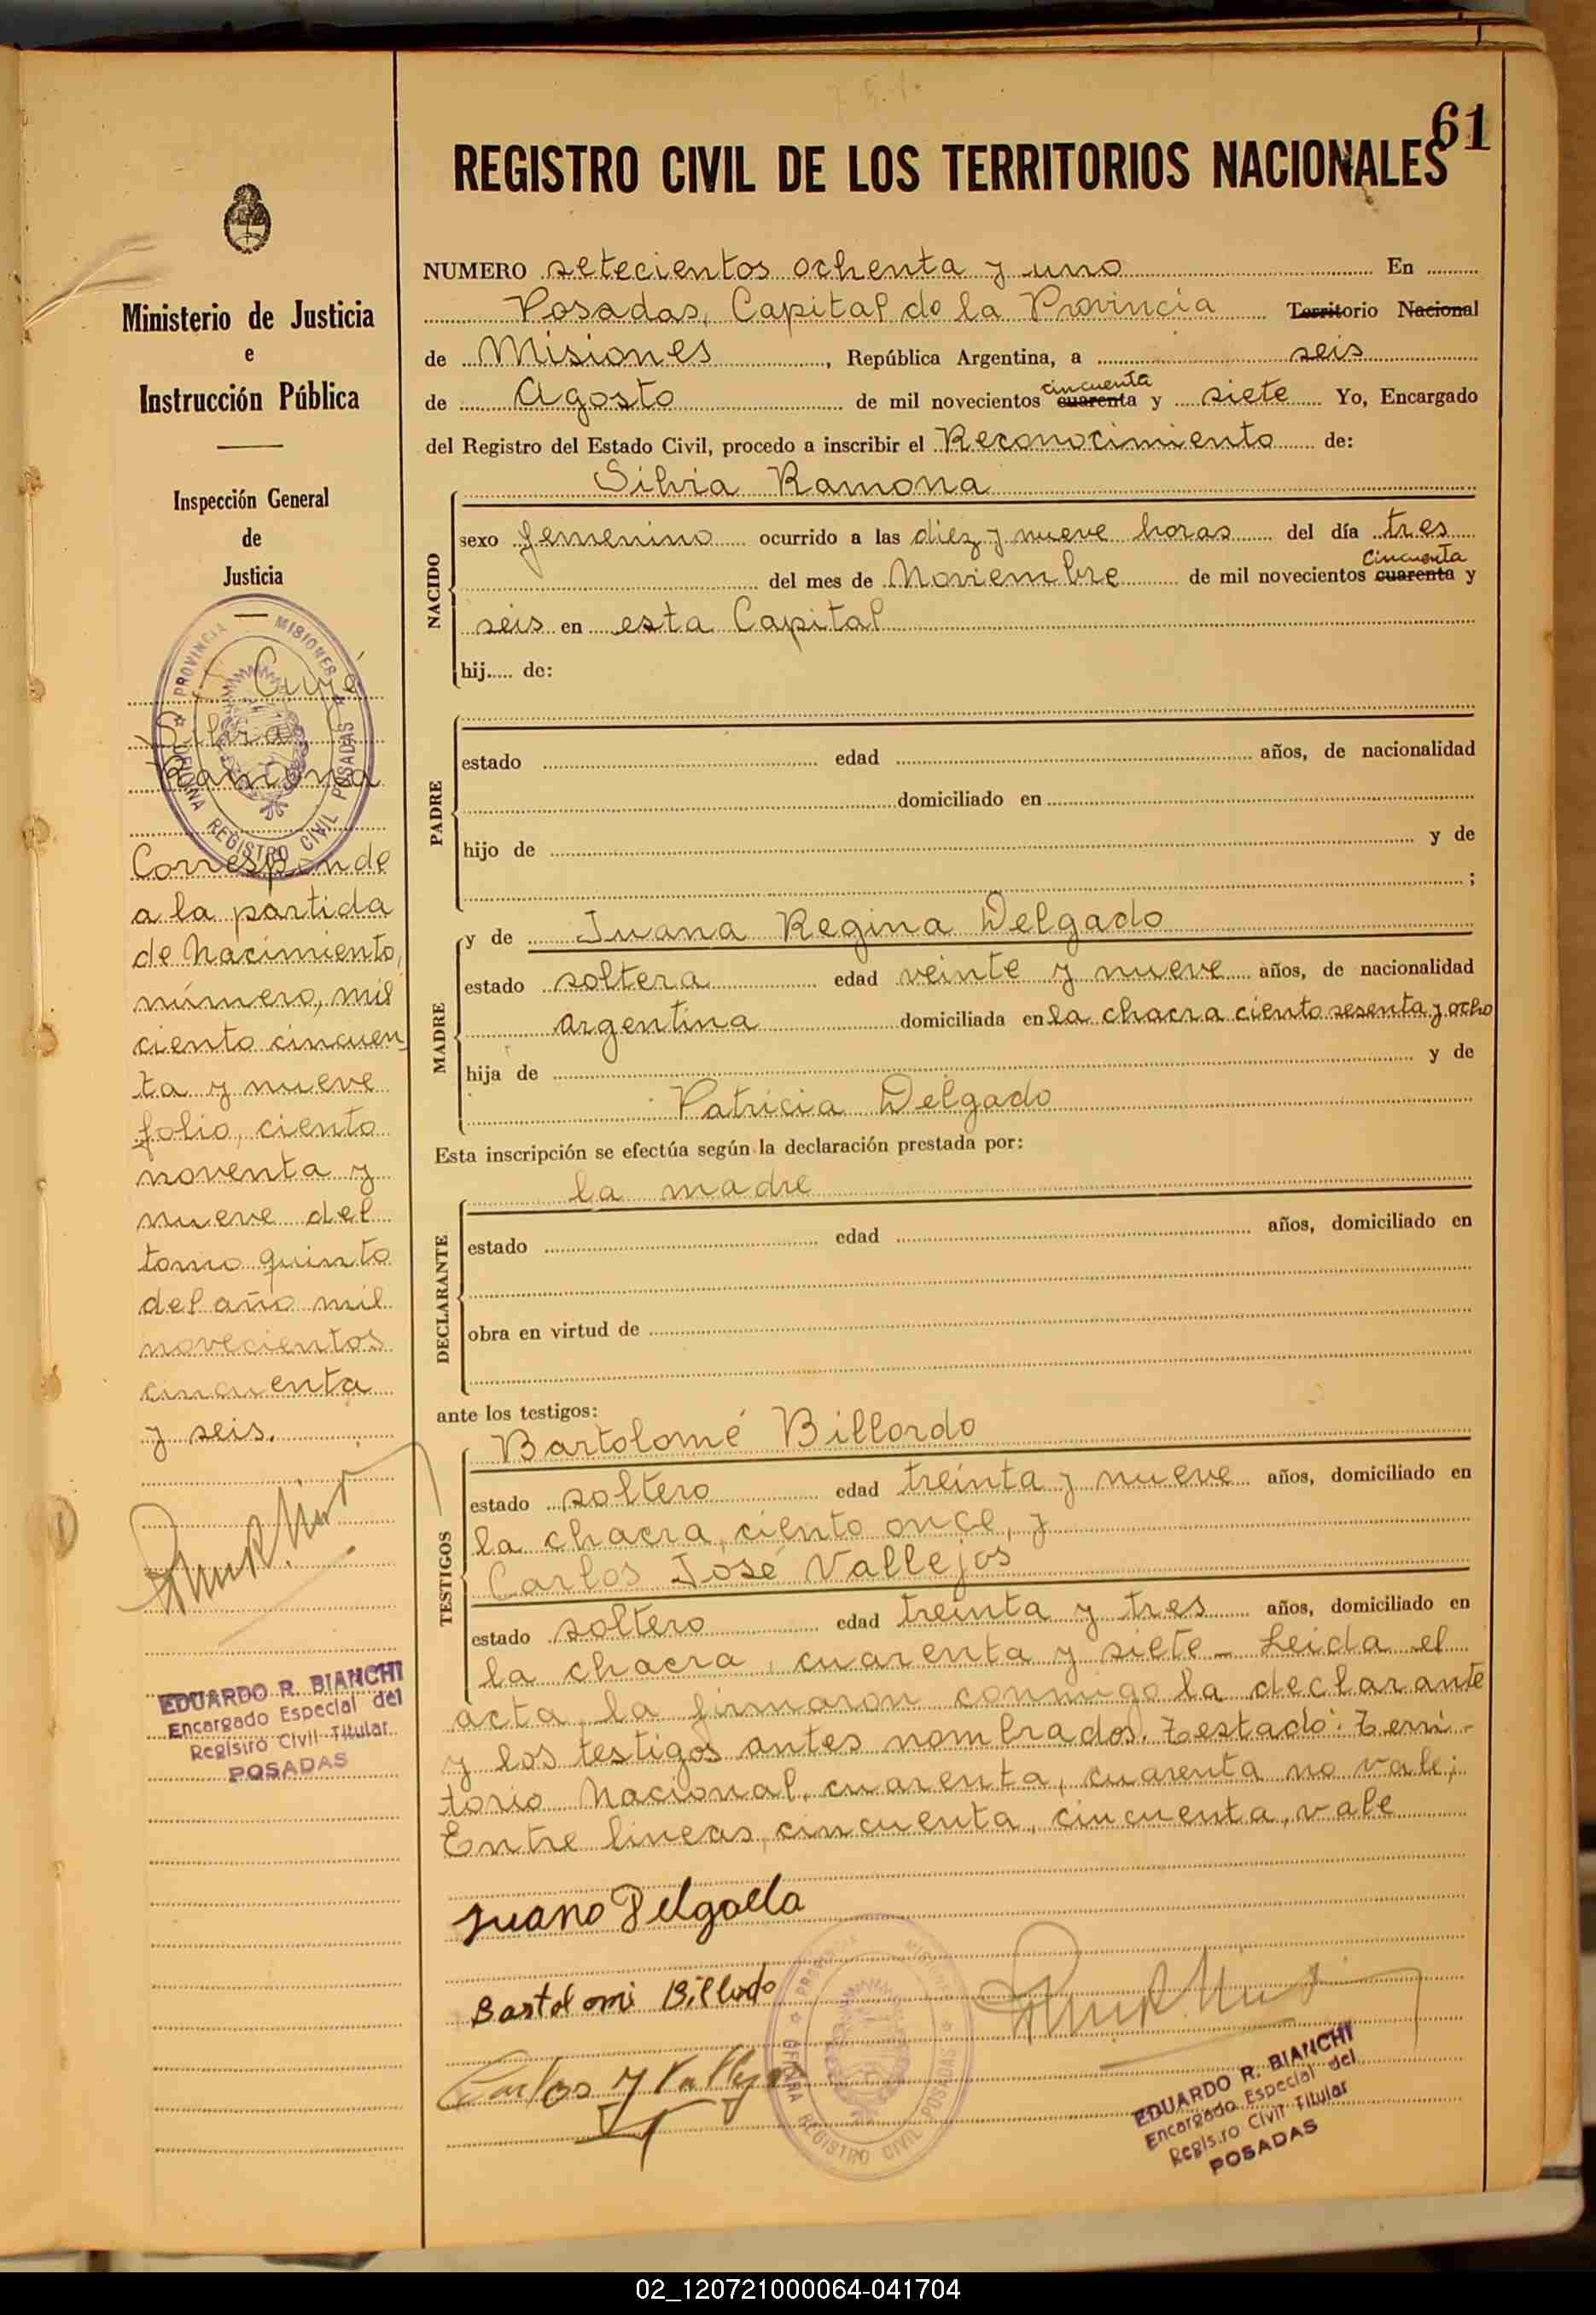 61
REGISTRO CIVIL DE LOS TERRITORIOS NACIONALES
Ministerio de Justicia
e
Instrucción Pública
Inspección General
de
Justicia
PROVINCIA MISIONES
OFICINA REGISTRO CIVIL POSADAS
Silvia
Ramona
Corresponde
a la partida
de Nacimiento,
número, mil
ciento cincuen
ta y nueve
folio, ciento
noventa y
nueve del
tomo quinto
del año mil
novecientos
cincuenta
y seis.
EDUARDO R. BIANCHI
Encargado Especial del
Registro Civil Titular
POSADAS
NUMERO setecientos ochenta y uno En
Posadas, Capital de la Provincia Territorio Nacional
de Misiones, República Argentina, a seis
de Agosto de mil novecientos cuarenta cincuenta y siete Yo, Encargado
del Registro del Estado Civil, procedo a inscribir el Reconocimiento de:
Silvia Ramona
NACIDO
sexo femenino ocurrido a las diez y nueve horas del día tres
del mes de Noviembre de mil novecientos cuarenta cincuenta y
seis en esta Capital
hij..... de:
PADRE
estado edad años, de nacionalidad
domiciliado en
hijo de y de
;
MADRE
y de Juana Regina Delgado
estado soltera edad veinte y nueve años, de nacionalidad
argentina domiciliada en la chacra ciento sesenta y ocho
hija de y de
Patricia Delgado
Esta inscripción se efectúa según la declaración prestada por:
la madre
DECLARANTE
estado edad años, domiciliado en
obra en virtud de
ante los testigos:
TESTIGOS
Bartolomé Billordo
estado soltero edad treinta y nueve años, domiciliado en
la chacra, ciento once, y
Carlos José Vallejos
estado soltero edad treinta y tres años, domiciliado en
la chacra, cuarenta y siete - Leida el
acta, la firmaron conmigo la declarante
y los testigos antes nombrados. Testado: Terri-
torio Nacional, cuarenta, cuarenta no vale;
Entre lineas, cincuenta, cincuenta, vale
Juano Delgado
Bartolomi Billordo
Carlos J Vallejos
PROVINCIA MISIONES
OFICINA REGISTRO CIVIL POSADAS
EDUARDO R. BIANCHI
Encargado Especial del
Registro Civil Titular
POSADAS
02_120721000064-041704